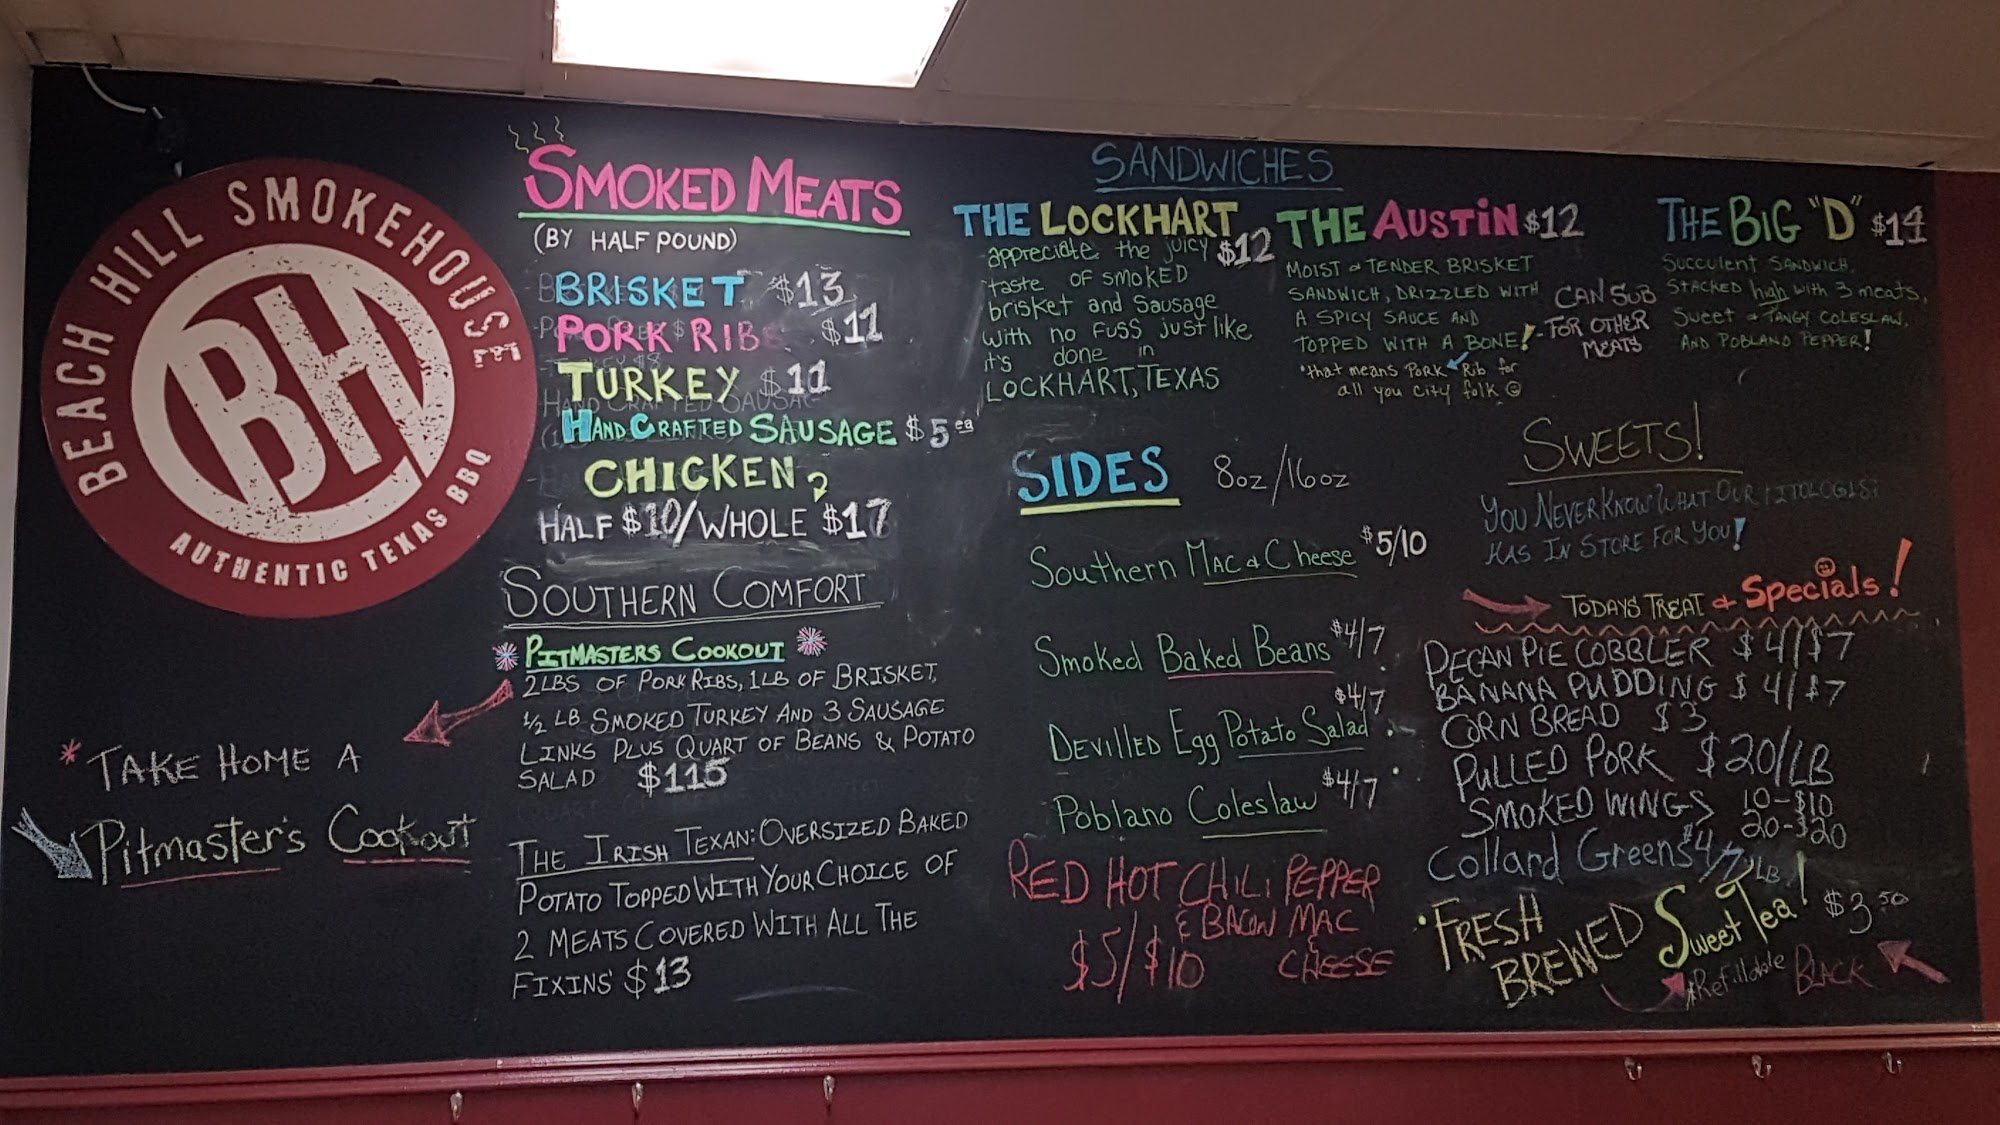 BEACH HILL SMOKEHOUSE
BH
AUTHENTIC TEXAS BBQ
* TAKE HOME A
Pitmaster's Cookout
SMOKED MEATS
(BY HALF POUND)
BRISKET $13
PORK RIBS $11
TURKEY $11
HAND CRAFTED SAUSAGE $5 ea
CHICKEN
HALF $10/WHOLE $17
SOUTHERN COMFORT
PITMASTERS COOKOUT
2LBS OF PORK RIBS, 1LB OF BRISKET,
1/2 LB SMOKED TURKEY AND 3 SAUSAGE
LINKS PLUS QUART OF BEANS & POTATO
SALAD $115
THE IRISH TEXAN: OVERSIZED BAKED
POTATO TOPPED WITH YOUR CHOICE OF
2 MEATS COVERED WITH ALL THE
FIXINS' $13
SANDWICHES
THE LOCKHART
$12
appreciate the juicy
taste of smoked
brisket and Sausage
with no fuss just like
it's done in
LOCKHART, TEXAS
THE AUSTIN $12
MOIST & TENDER BRISKET
SANDWICH, DRIZZLED WITH
A SPICY SAUCE AND
TOPPED WITH A BONE!
*that means Pork Rib for
all you city folk
-CAN SUB
FOR OTHER
MEATS
THE BIG "D" $14
Succulent SANDWICH,
STACKED high with 3 meats,
Sweet & TANGY COLESLAW,
AND POBLANO PEPPER!
SIDES 8oz/16oz
Southern Mac & Cheese $5/10
Smoked Baked Beans $4/7
Devilled Egg Potato Salad $4/7
Poblano Coleslaw $4/7
RED HOT CHILI PEPPER
& BACON MAC
$5/$10 CHEESE
SWEETS!
YOU NEVER KNOW WHAT OUR
HAS IN STORE FOR YOU!
TODAYS TREAT & Specials!
PECAN PIE COBBLER $4/$7
BANANA PUDDING $4/$7
CORN BREAD $3
PULLED PORK $20/LB
SMOKED WINGS 10-$10
20-$20
Collard Greens $4/7 LB
FRESH
BREWED Sweet Tea! $3.50
*Refillable BLACK